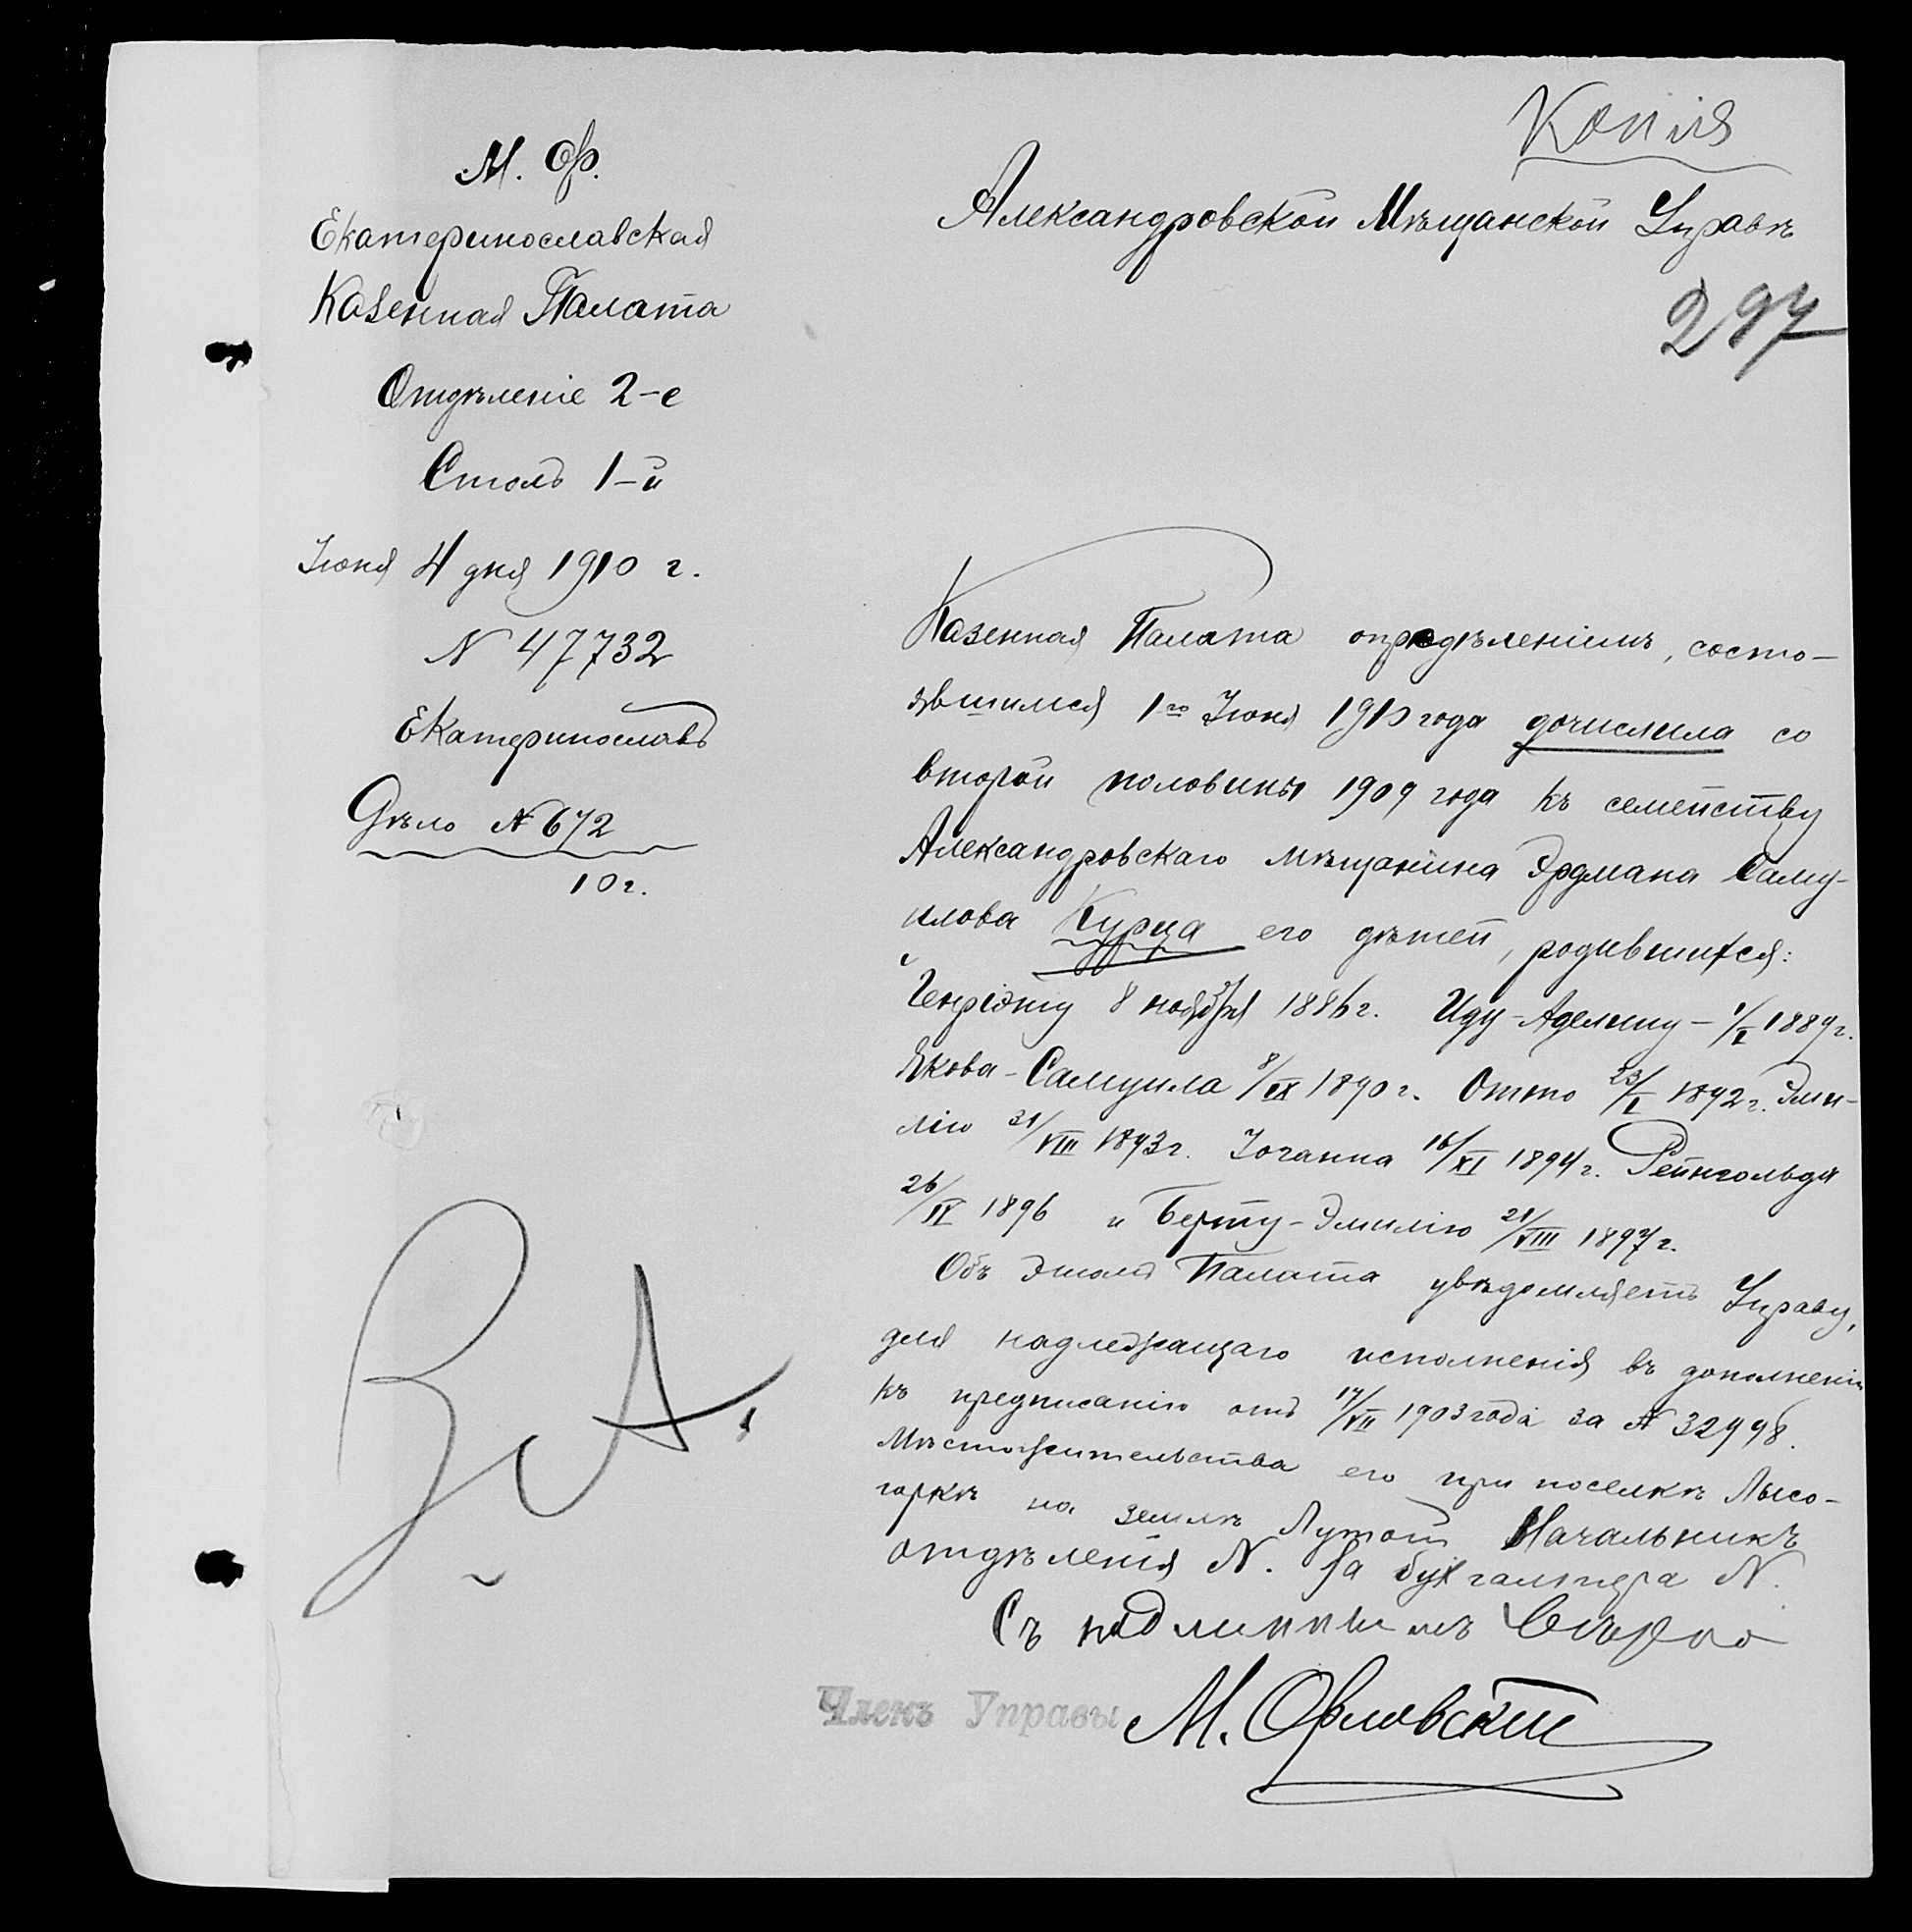 Копія
М. Ф.
Екатеринославская
Казенная Палата
Отдѣленіе 2-е
Столъ 1-й
Іюня 4 дня 1910 г.
N 47732
Екатеринославъ
Дѣло № 672
10 г.
Александровской Мѣщанской Управѣ
297
Казенная Палата опредѣленіемъ, состо-
явшимся 1го Іюня 1910 года дочислила со
второй половины 1909 года къ семейству
Александровскаго мѣщанина Эрдмана Саму-
илова Курца его дѣтей, родившихся:
Генріэту 8 ноября 1886 г. Иду-Аделину – 1/X 1889 г.
Якова-Самуила 8/IX 1890 г. Отто 23/I 1892 г. Эми-
лію 21/VIII 1893 г. Іоганна 16/XI 1894 г. Рейнгольда
26/IV 1896 и Берту-Эмилію 21/VIII 1897 г.
Объ этомъ Палата увѣдомляетъ Управу,
для надлежащаго исполненія въ дополненіи
къ предписанію отъ 17/VII 1903 года за № 32998.
Мѣстожительства его при поселкѣ Лысо-
горкѣ на землѣ Лутой Начальникъ
отдѣленія N. За бухгалтера N.
Съ подлиннымъ вѣрно
Членъ Управы М. Орловскій